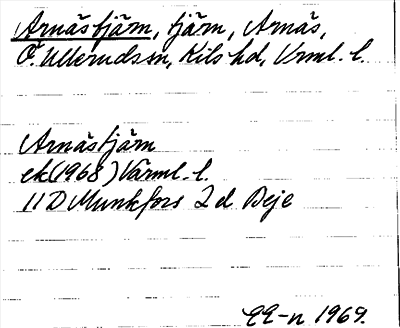 Arnästjärn, tjärn, Arnäs,
Ö. Ulleruds sn, Kils hd, Vrml. l.
Arnästjärn
ek (1968) Värml. l.
11 D Munkfors 2 d Deje
EE-n 1969.